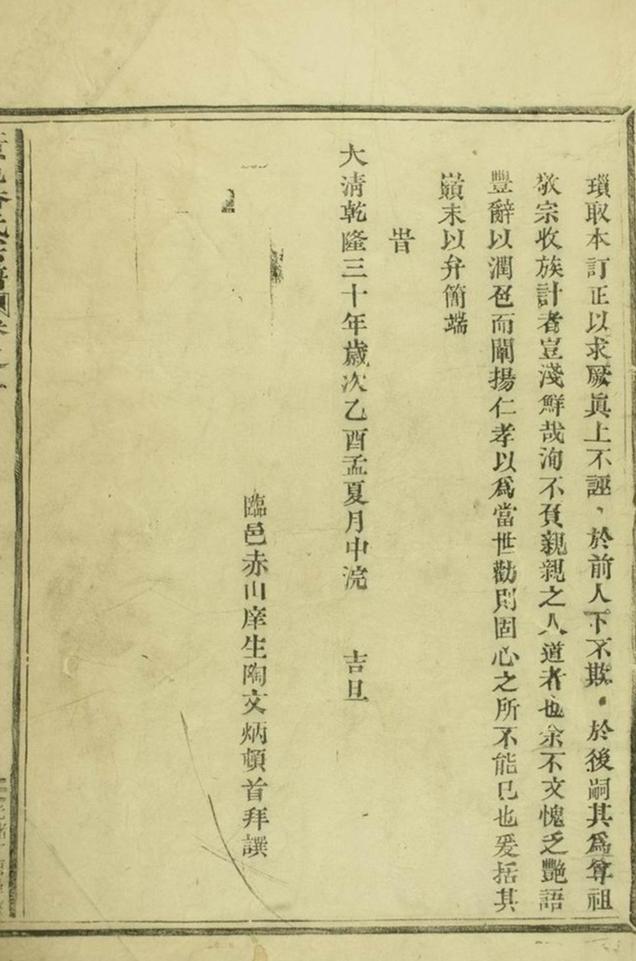 瑣取本訂正以求厥眞上不誣、於前人下不欺、於後嗣其爲尊祖
敬宗收族計者豈淺鮮哉洵不負親親之人道者也余不文愧乏艷語
豐辭以潤色而闡揚仁孝以爲當世勸則固心之所不能已也爰括其
巔末以弁簡端
旹
大清乾隆三十年歲次乙酉孟夏月中浣 吉旦
臨邑赤山庠生陶文炳頓首拜譔